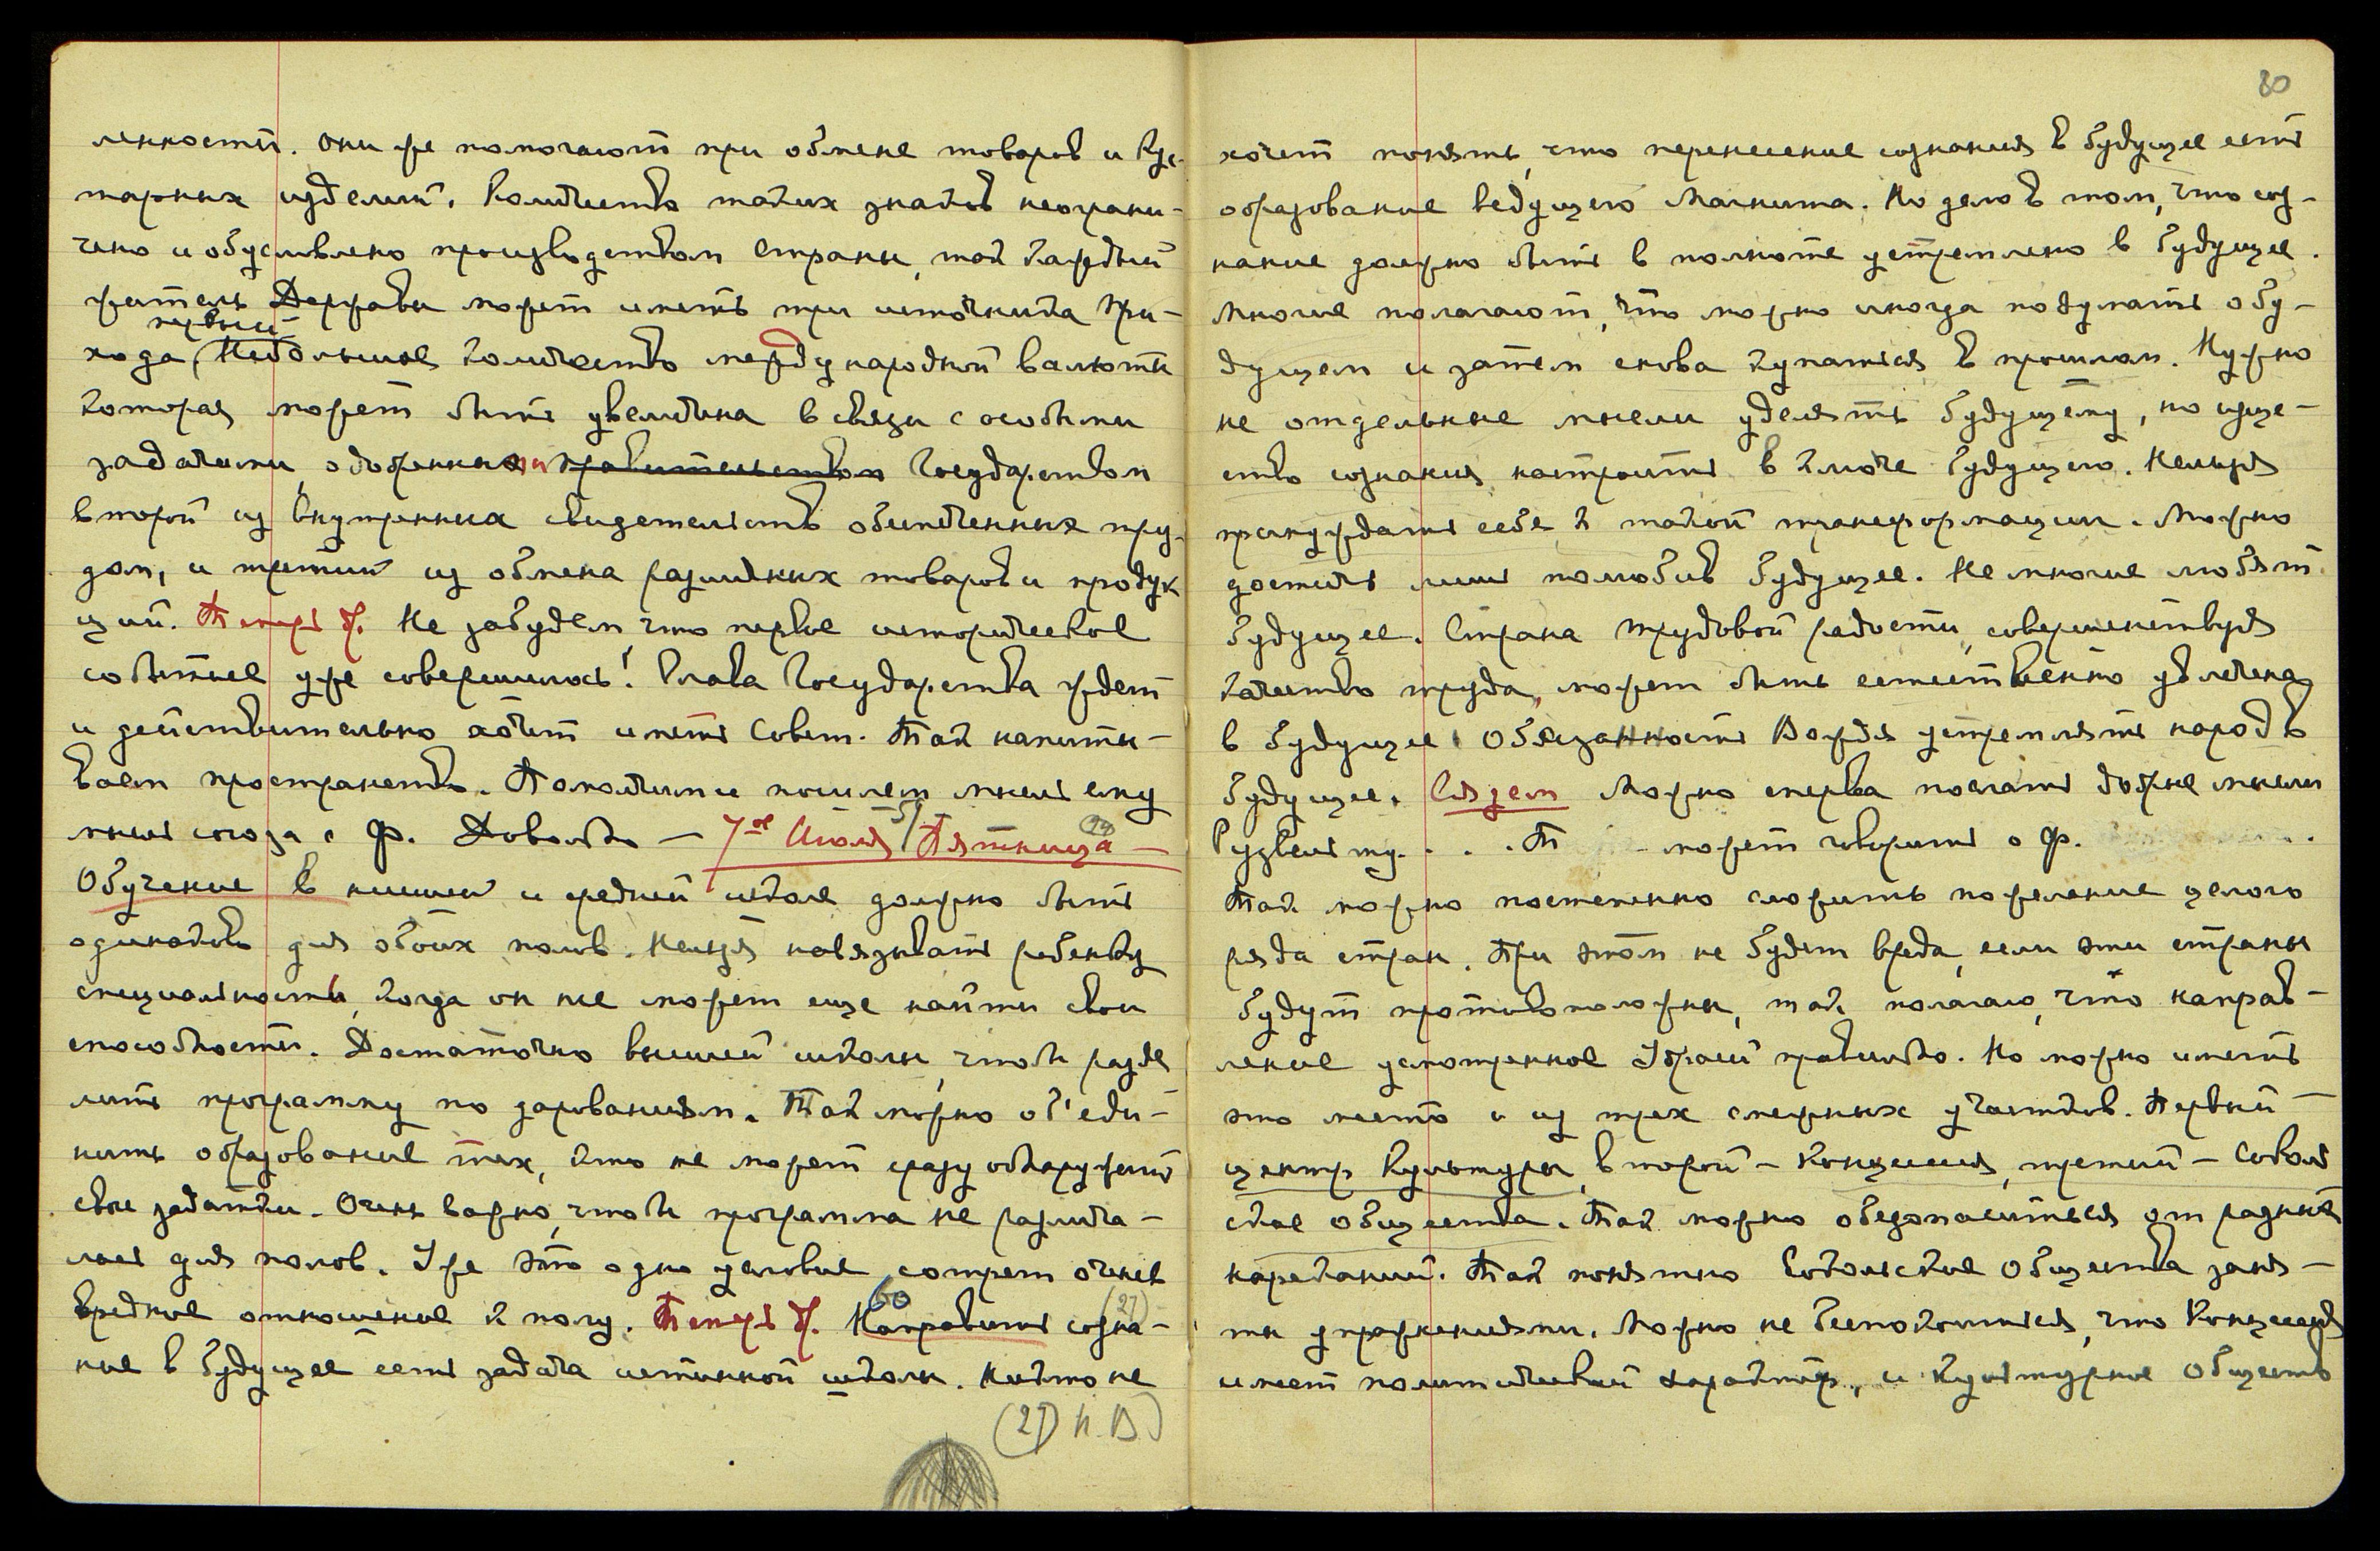 ленности. Они же помогают при обмене товаров и кус-
тарных изделий. Количество таких знаков неограни-
чено и обусловлено производством Страны, так каждый
житель Державы может иметь три источника при-
первый
хода, Небольшое количество международной валюты
которая может быть увеличена в связи с особыми
задачами, одобренными правительством Государством
второй из внутренних свидетельств обеспеченных тру-
дом, и третий из обмена различных товаров и продук
ций. Теперь др. Не забудем, что первое историческое
событие уже совершилось! Глава Государства ждет
и действительно хочет иметь Совет. Так напиты-
ваем пространство. Помолчим и пошлем мысль ему
мысль союза с Ф. Довольно — 7ое Июля Пятница —
Обучение в низшей и средней школе должно быть
одинаково для обоих полов. Нельзя навязывать ребенку
специальность, когда он не может еще найти свои
способности. Достаточно высшей школы, чтобы разде
лить программу по дарованиям. Так можно об'еди-
нить образование тех, кто не может сразу обнаружить
свои задатки. Очень важно, чтобы программа не различа-
лась для полов. Уже это одно условие сотрет очень
вредное отношение к полу. Теперь др. Направить созна-
ние в будущее есть задача истинной школы. Никто не
(27) Н.В)
80
хочет понять, что перенесение сознания в будущее есть
образование ведущего Магнита. Но дело в том, что соз-
нание должно быть в полноте устремлено в будущее.
Многие полагают, что можно иногда подумать о бу-
дущем и затем снова купаться в прошлом. Нужно
не отдельные мысли уделять будущему, но суще-
ство сознания настроить в ключе будущего. Нельзя
принуждать себя к такой трансформации. Можно
достичь лишь полюбив будущее. Не многие любят
будущее. Страна трудовой радости, совершенствуя
качество труда, может быть естественно увлечена
в будущее. Обязанность Вождя устремлять народ в
будущее. Сядем Можно сперва послать добрые мысли
Рузвельту. . . . П может говорить о Ф.
Так можно постепенно сложить пожелание целого
ряда стран. При этом не будет вреда, если эти страны
будут противоположны, так полагаю, что направ-
ление усмотренное Удраей правильно. Но можно иметь
это место и из трех смежных участков. Первый
центр Культуры, второй - Концессия, третий - Соколь
ское общества. Так можно обезопаситься от разных
нареканий. Так понятно Сокольские Общества заня-
ты упражнениями. Можно не беспокоиться, что Концессия
имеет политический характер, и культурное Общество